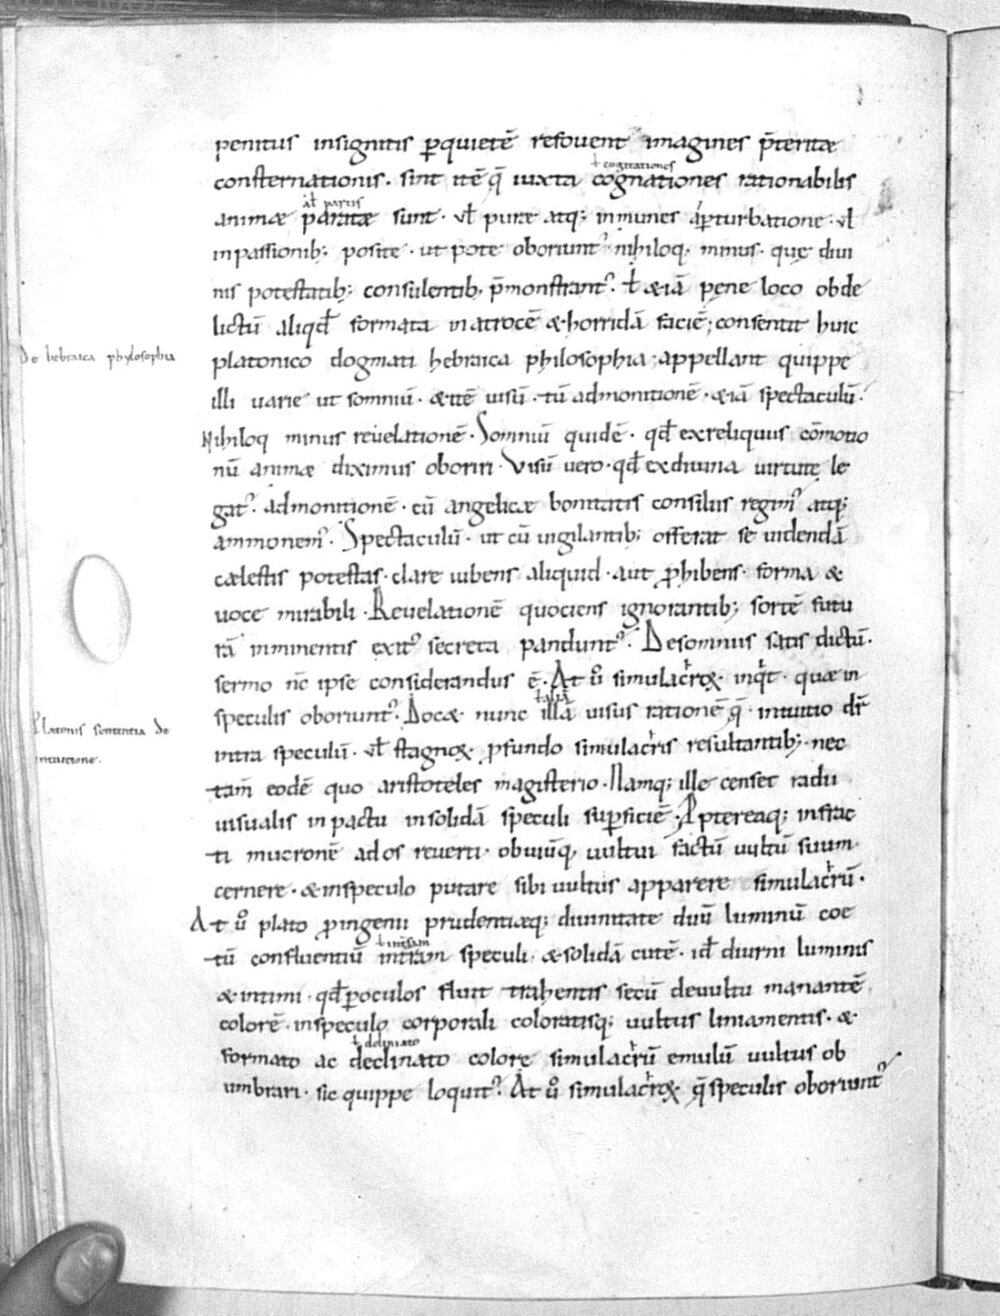 penitus insignitis ꝑquietē refovent imagines p̄teritæ
ł cogitationes
consternationis. sint itē q̄ iuxta cognationes rationabilis
at partis
animæ paratæ sunt. vł puræ atq; inmunes áꝑturbatione. vł
inpassionib; positę. ut pote oboriunt᷑ nihiloq, minus. quę divi
nis potestatib; consulentib, p̄monstrant᷑. ł &iā pene loco obde
lictū aliqđ formata inatrocē & horridā faciē; consentit huic
De hebraica phylosophia
platonico dogmati hebraica philosophia; appellant quippe
illi varie ut somniū. &itē visū. tū admonitionē. &iā spectaculū.
Nihiloq minus revelationē. Somniū quidē. qđ exreliquiis cōmotio
nū animæ diximus oboriri. Visū vero. qđ exdivina virtutę le
gat᷑. admonitionē. cū angelicæ bonitatis consiliis regim᷑ atq;
ammonem᷑. Spectaculū. ut cū vigilantib; offerat se videndā
cælestis potestas. clare iubens aliquid. aut ꝓhibens. forma &
voce mirabili. Revelationē quociens ignorantib; sortē futu
rā imminentis exit᷒ secreta pandunt᷑. Desomniis satis dictū.
sermo nc̄ ipse considerandus ē. At ů simulacrꝝ. inqt. quæ in
ł aliā
speculis oboriunt᷑. Docæ nunc illā visus rationē q̄. intuitio dr̄
Platonis sententia de
intuitione.
intra speculū. vł stagnoꝝ ꝓfundo simulacris resultantib; nec
tam̄ eodē quo aristoteles magisterio. Namq; ille censet radii
visualis inpactu insolidā speculi suꝑficiē. Aptereaq; infrac
ti mucronē ados reverti. obviūq, vultui factū vultū suum
cernere. &inspeculo putare sibi vultus apparere simulacrū.
At ů plato ꝓingenii prudentiæq; divinitate duū luminū coe
ł inēsam
tū confluentiū intēam speculi. &solidā cutē. id diurni luminis
&intimi. qđꝑoculos fluit trahentis secū devultu manantē
colorē. inspeculo corporali coloratisq; vultus liniamentis. &
ł deliniato
formato ac declinato colore simulacrū emulū vultus ob
umbrari. sic quippe loquit᷑. At ů simulacrꝝ q̄ speculis oboriunt᷑